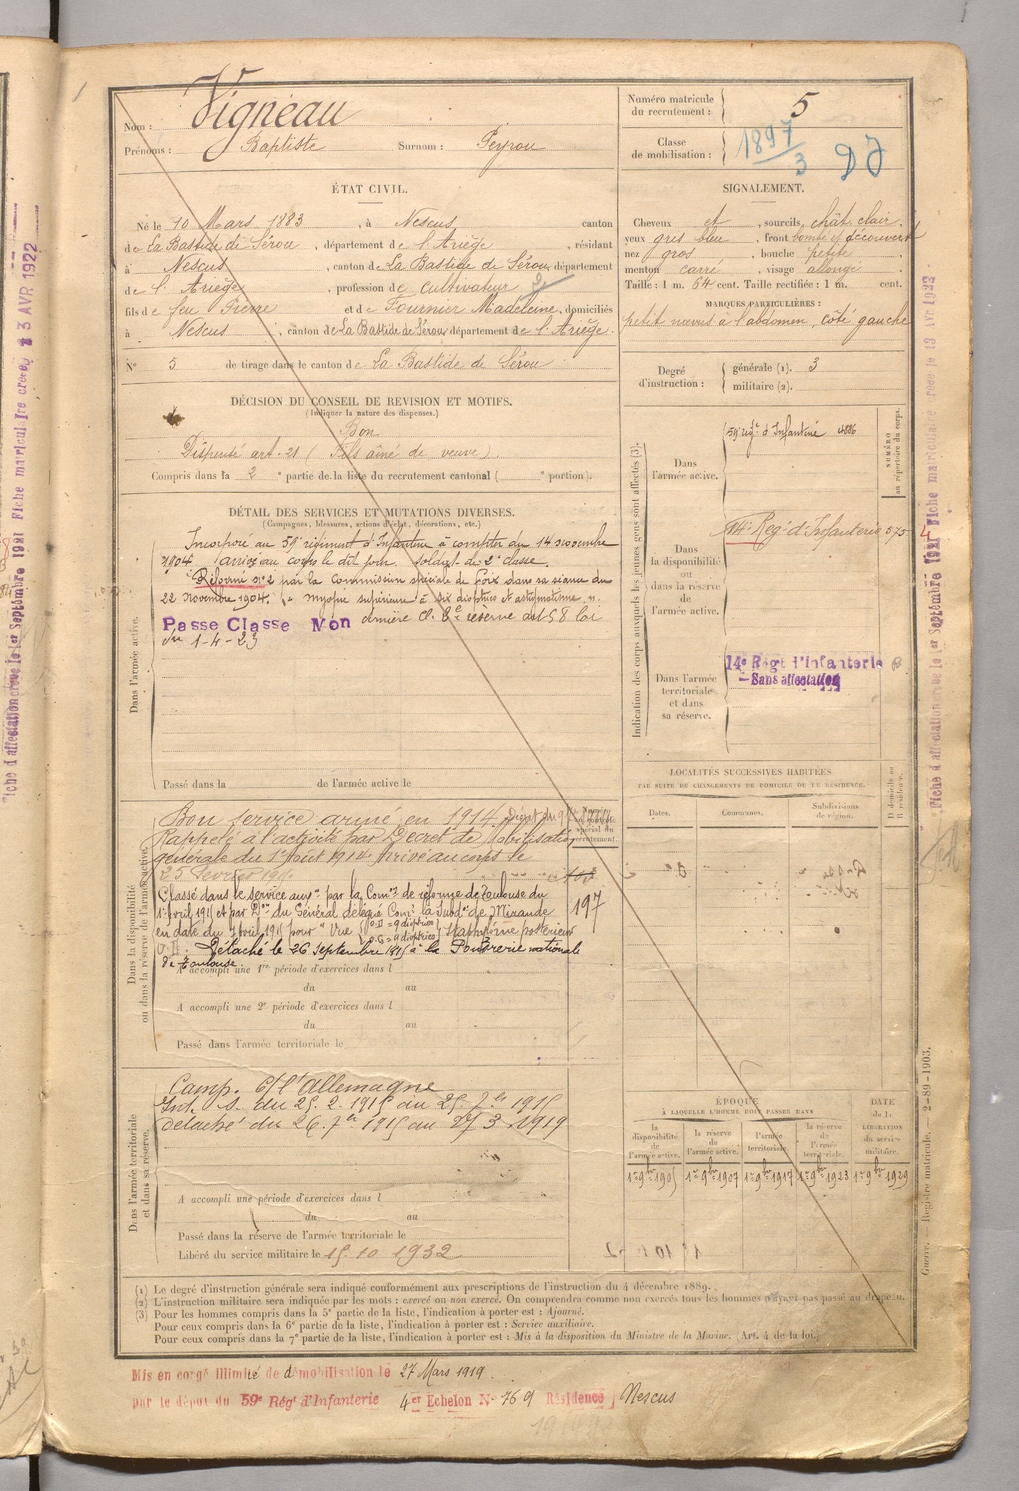 Nom : Vigneau
Prénoms : Baptiste Surnom : Peyrou
Numéro matricule
du recrutement : 5
Classe
de mobilisation : 1897/3
ÉTAT CIVIL.
Né le 10 Mars 1883, à Nescus canton
de La Bastide de Sérou, département de l'Ariège, résidant
à Nescus, canton de La Bastide de Sérou, département
de l'Ariège, profession de cultivateur
fils de feu Pierre et de Fournier Madeleine, domiciliés
à Nescus, canton de La Bastide de Sérou département de l'Ariège.
N° 5 de tirage dans le canton de La Bastide de Sérou
SIGNALEMENT.
Cheveux et, sourcils chât clair,
yeux gris bleu, front bombé et découvert
nez gros, bouche petite,
menton carré, visage allongé
Taille : 1 m. 64 cent. Taille rectifiée : 1 m. cent.
MARQUES PARTICULIÈRES :
petit nœvus à l'abdomen, côté gauche
Degré
d'instruction : générale (1). 3
militaire (2).
DÉCISION DU CONSEIL DE REVISION ET MOTIFS.
(Indiquer la nature des dispenses.)
Bon
Dispensé art. 21 (Fils aîné de veuve).
Compris dans la 2e partie de la liste du recrutement cantonal ( e portion).
DÉTAIL DES SERVICES ET MUTATIONS DIVERSES.
(Campagnes, blessures, actions d'éclat, décorations, etc.)
Dans l'armée active.
Incorporé au 59e régiment d'Infanterie à compter du 14 novembre
1904, arrivé au corps le dit jour. Soldat de 2e classe.
Réformé n° 2 par la Commission spéciale de Foix dans sa séance du
22 novembre 1904. "myopie supérieure à six dioptries et astigmatisme."
Passe Classe Non dernière Cl. 2e réserve art 58 loi
du 1-4-23
Passé dans la de l'armée active le
Indication des corps auxquels les jeunes gens sont affectés (3).
NUMÉRO
au répertoire du corps.
Dans
l'armée active.
59e régt d'Infanterie 4886
Dans
la disponibilité
ou
dans la réserve
de
l'armée active.
14e Regt d'Infanterie 575
Dans l'armée
territoriale
et dans
sa réserve.
14e Régt d'Infanterie
Sans affectation
LOCALITÉS SUCCESSIVES HABITÉES
PAR SUITE DE CHANGEMENTS DE DOMICILE OU DE RÉSIDENCE.
Dates. Communes. Subdivisions
de région. D domicile ou
R résidence.
Dans la disponibilité
ou dans la réserve de l'armée active.
Bon service armé en 1914
Rappelé à l'activité par Décret de Mobilisation
générale du 1er Août 1914. Arrivé au corps le
25 février 1915
Classé dans le service auxre par la Comon de réforme de Toulouse du
1er avril 1915 et par Don du Général délégué Comt la Subdon de Mirande
en date du 7 avril 1915 pour "Vue O.D = 9 dioptries O.G = 11 dioptries Staphylôme postérieur
O.D. Détaché le 26 septembre 1915 à la Poudrerie nationale
de Toulouse.
197
A accompli une 1re période d'exercices dans l
du au
A accompli une 2e période d'exercices dans l
du au
Passé dans l'armée territoriale le
Dans l'armée territoriale
et dans sa réserve.
Camp. c/ l'Allemagne
Int. S. du 25. 2. 1915 au 25. 7bre 1915
détaché du 26. 7bre 1915 au 27 3. 1919
A accompli une période d'exercices dans l
du au
Passé dans la réserve de l'armée territoriale le
Libéré du service militaire le 15. 10 1932
ÉPOQUE
À LAQUELLE L'HOMME DOIT PASSER DANS
DATE
de la
LIBÉRATION
du service
militaire.
la
disponibilité
de
l'armée active.
la réserve
de
l'armée active.
l'armée
territoriale.
la réserve
de
l'armée
territoriale.
1er 9bre 1905 1er 9bre 1907 1er 9bre 1917 1er 9bre 1923 1er 9bre 1929
(1) Le degré d'instruction générale sera indiqué conformément aux prescriptions de l'instruction du 4 décembre 1889.
(2) L'instruction militaire sera indiquée par les mots : exercé ou non exercé. On comprendra comme non exercés tous les hommes n'ayant pas passé au drapeau.
(3) Pour les hommes compris dans la 5e partie de la liste, l'indication à porter est : Ajourné.
Pour ceux compris dans la 6e partie de la liste, l'indication à porter est : Service auxiliaire.
Pour ceux compris dans la 7e partie de la liste, l'indication à porter est : Mis à la disposition du Ministre de la Marine. (Art. 4 de la loi.)
Mis en congé illimité de démobilisation le 27 Mars 1919.
par le dépôt du 59e Régt d'Infanterie 4er Echelon N° 769 Résidence Nescus
Guerre. — Registre matricule. — 2-89-1903.
Fiche d'affectation créée le 1er Septembre 1921 Fiche matriculaire créée le 13 AVR 1922
Fiche d'affectation créée le 1er Septembre 1921 Fiche matriculaire créée 3 AVR 1922